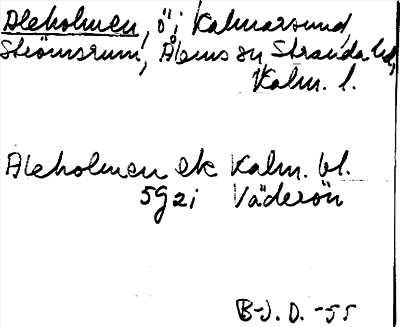 Aleholmen, ö i Kalmarsund,
Strömsrum, Ålems sn, Stranda hd,
Kalm. l.
Aleholmen ek Kalm. bl.
5g2i Väderön
B-J. D. -55